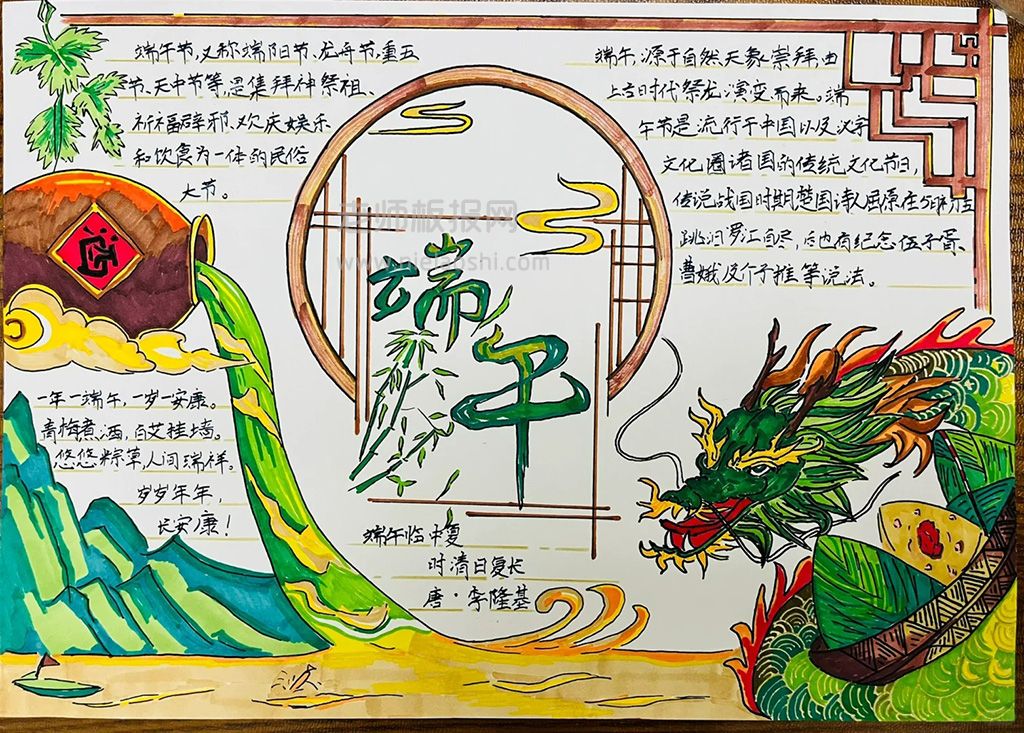 端午节,又称端阳节、龙舟节、重五
节、天中节等,是集拜神祭祖、
祈福辟邪、欢庆娱乐
和饮食为一体的民俗
大节。
端午,源于自然天象崇拜,由
上古时代祭龙演变而来。端
午节是流行于中国以及汉字
文化圈诸国的传统文化节日,
传说战国时期楚国诗人屈原在5月5日
跳汨罗江自尽,后也有纪念伍子胥、
曹娥及介子推等说法。
老师板报网
端午
一年一端午,一岁一安康。
青梅煮酒,白艾挂墙。
悠悠粽草,人间瑞祥。
岁岁年年,
长安康!
端午临中夏
时清日复长
唐·李隆基